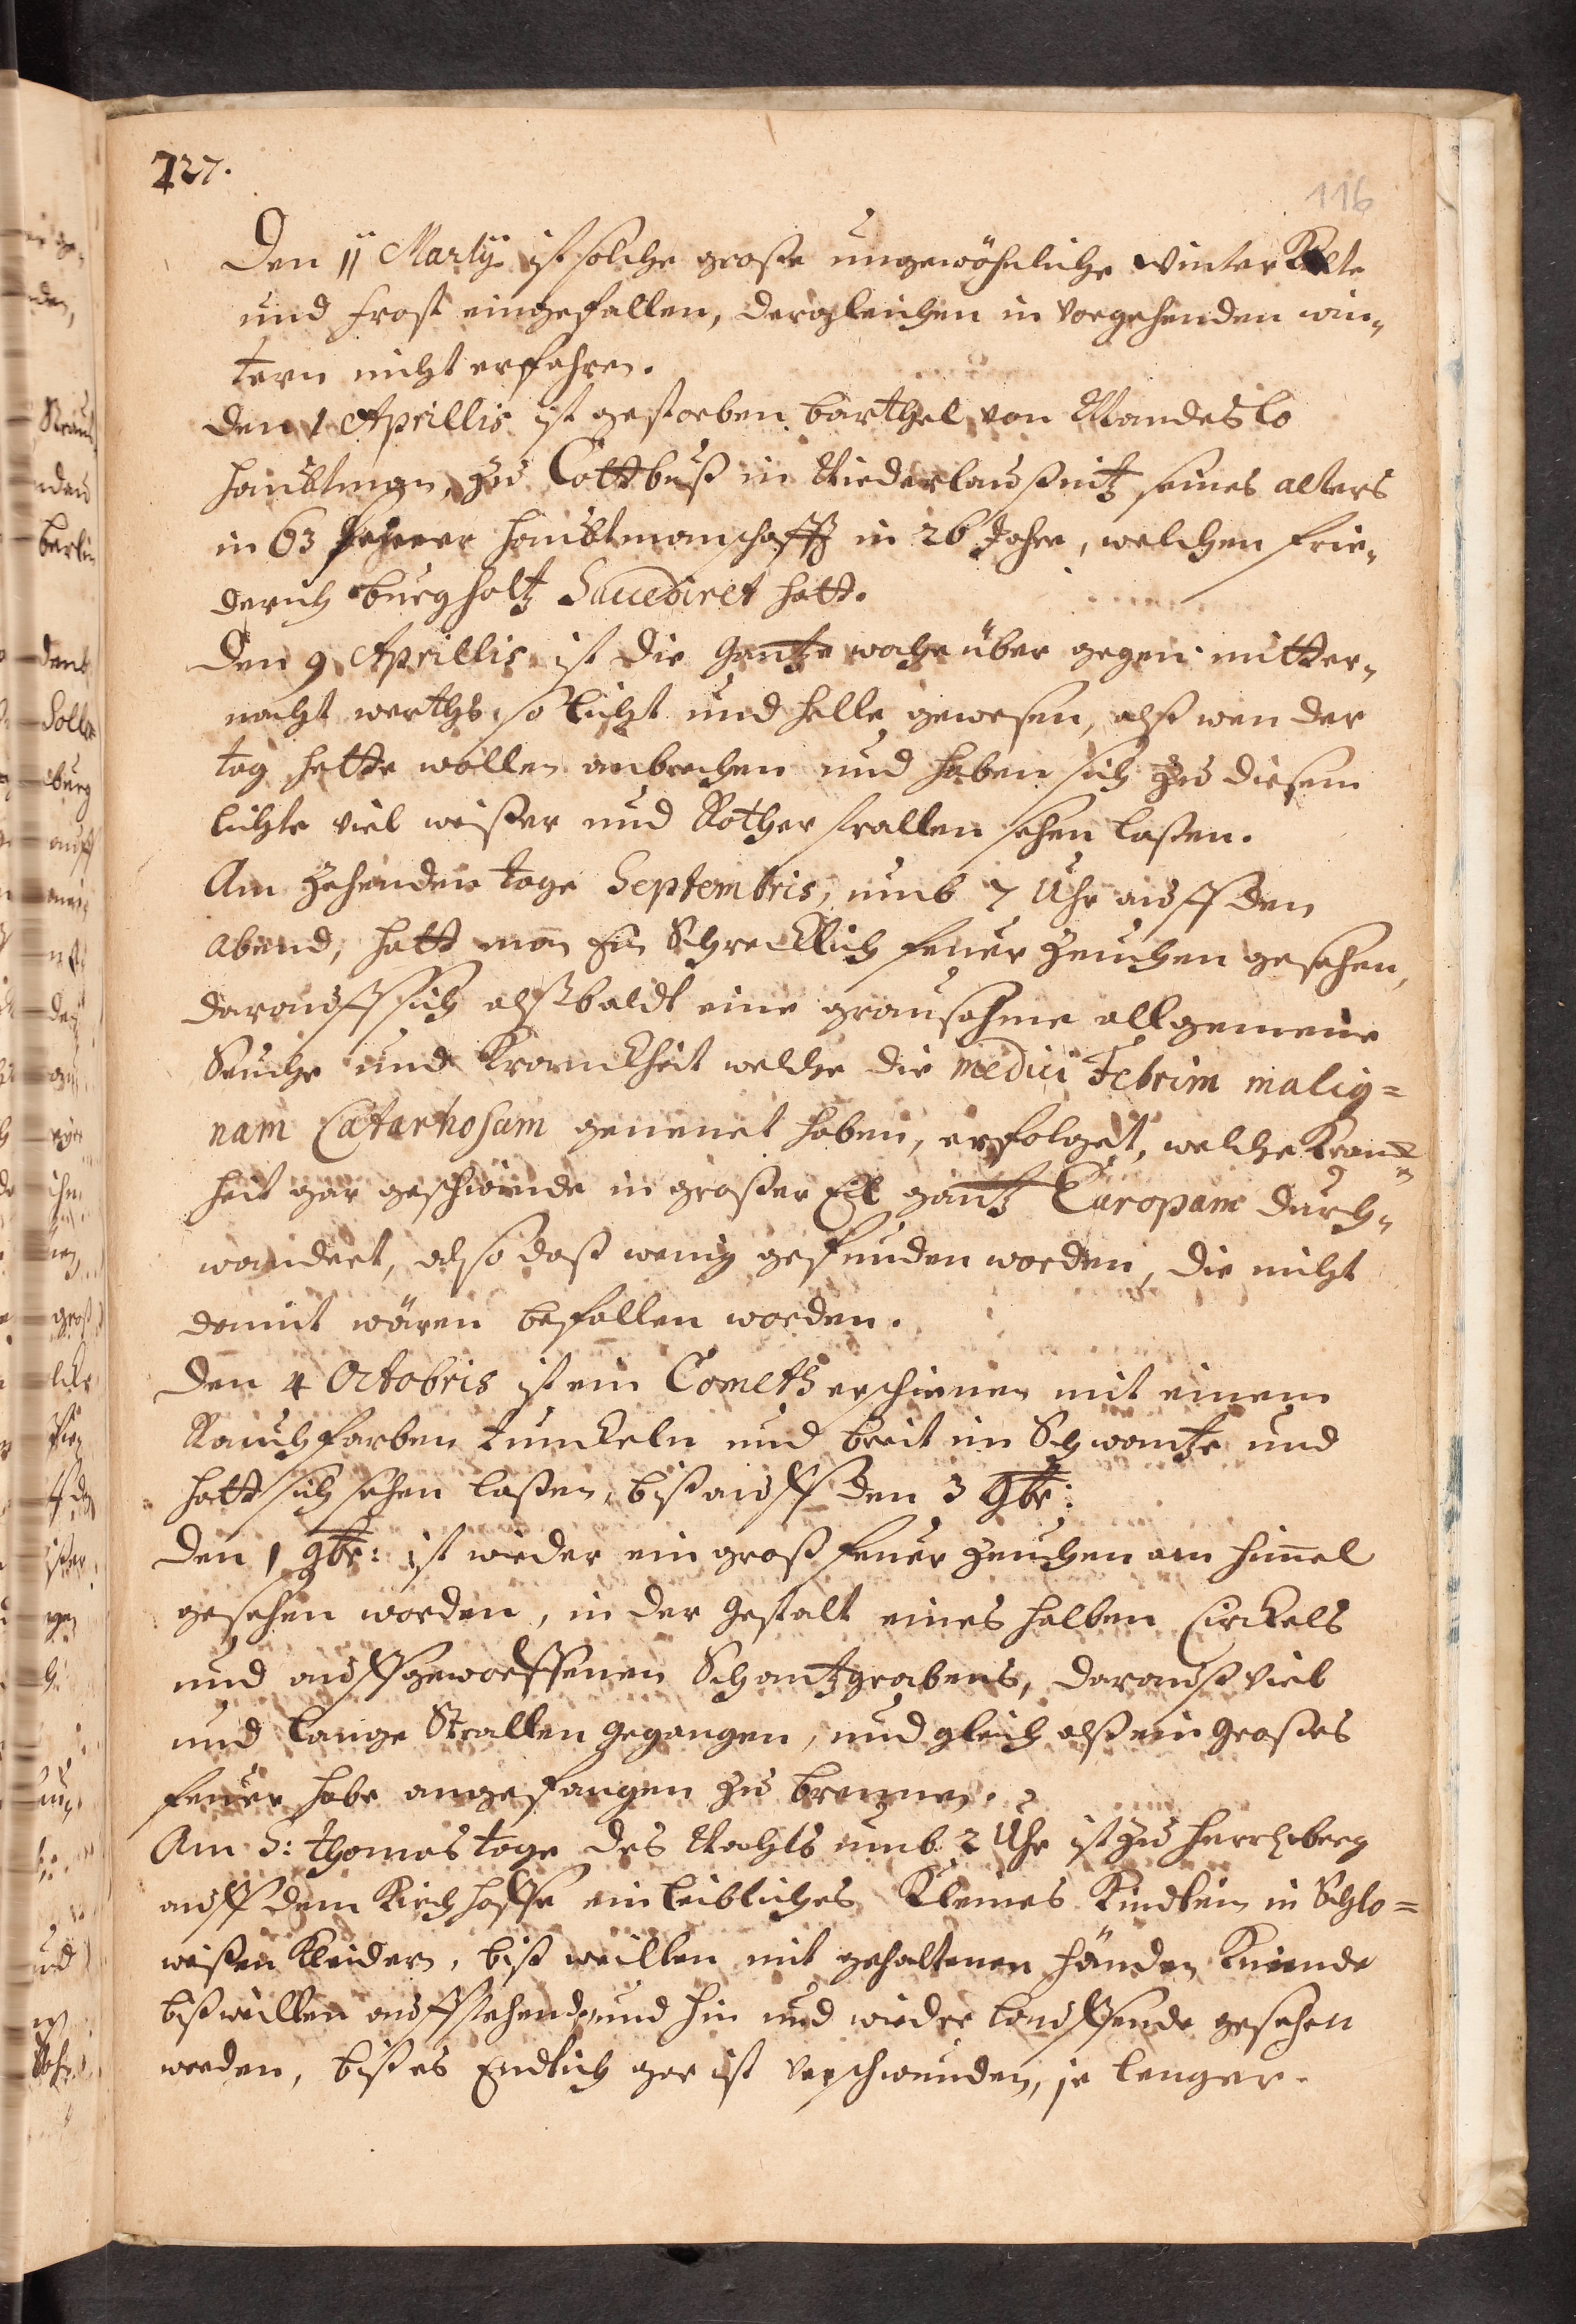 727.
116
Den 11 Martij ist solche große ungewöhnliche winter Kelte
und frost eingefallen, dergleichen in vorgehenden win„
tern nicht erfahren.
Den 1 Aprillis ist gestorben barthel von Mandeslo
haubtman zu Cottbuß in Niederlaußnitz seines alters
in 63 Haubtmanschafft in 26 Jahre, welchen frie„
derich burgholtz Succediret hatt.
Den 9 Aprillis ist die gantze woche über gegen mitter„
nacht werths so licht und helle gewesen, alß wen der
tag hette wollen anbrechen und haben sich zu diesem
lichte viel weißer und Rother strallen sehen laßen.
Am zehenden tage Septembris, umb 7 Uhr auff den
abend, hatt man Ein Schrecklich feuer zeuchen gesehen,
darauff sich alßbaldt eine grausahme allgemeine
Seuche und Kranckheit welche die medici Febrim malig=
nam Catarhosam genenet haben, erfolget, welche Kranck„
heit gar geschwinde in großer Eil gantz Europam durch„
wandert, also daß wenig gefunden worden, die nicht
damit wären befallen worden.
Den 4 Octobris ist ein Cometh erschienen mit einem
Rauchfarben tunckeln und breit im Schwantze und
hatt sich sehen laßen, biß auff den 3 9br:
Den 1 9br: ist wieder ein groß feuer zeuchen am himel
gesehen worden, in der gestalt eines halben Circkels
und auffgeworffenen Schantzgrabens, darauß viel
und lange Strallen gegangen, und gleich alß ein großes
feuer habe angefangen zu brennen.
Am S: Thomas tage des Nachts umb 2 Uhr ist zu Hertzberg
auff dem Kirchhoffe ein leibliches Kleines Kindlein in Schlo=
weißen Kleidern, biß weillen mit gehaltenen händen Knieende
bißweillen auffstehend und hin und wieder lauffende gesehen
worden, biß es Endlich gar ist verschwunden, je lenger.